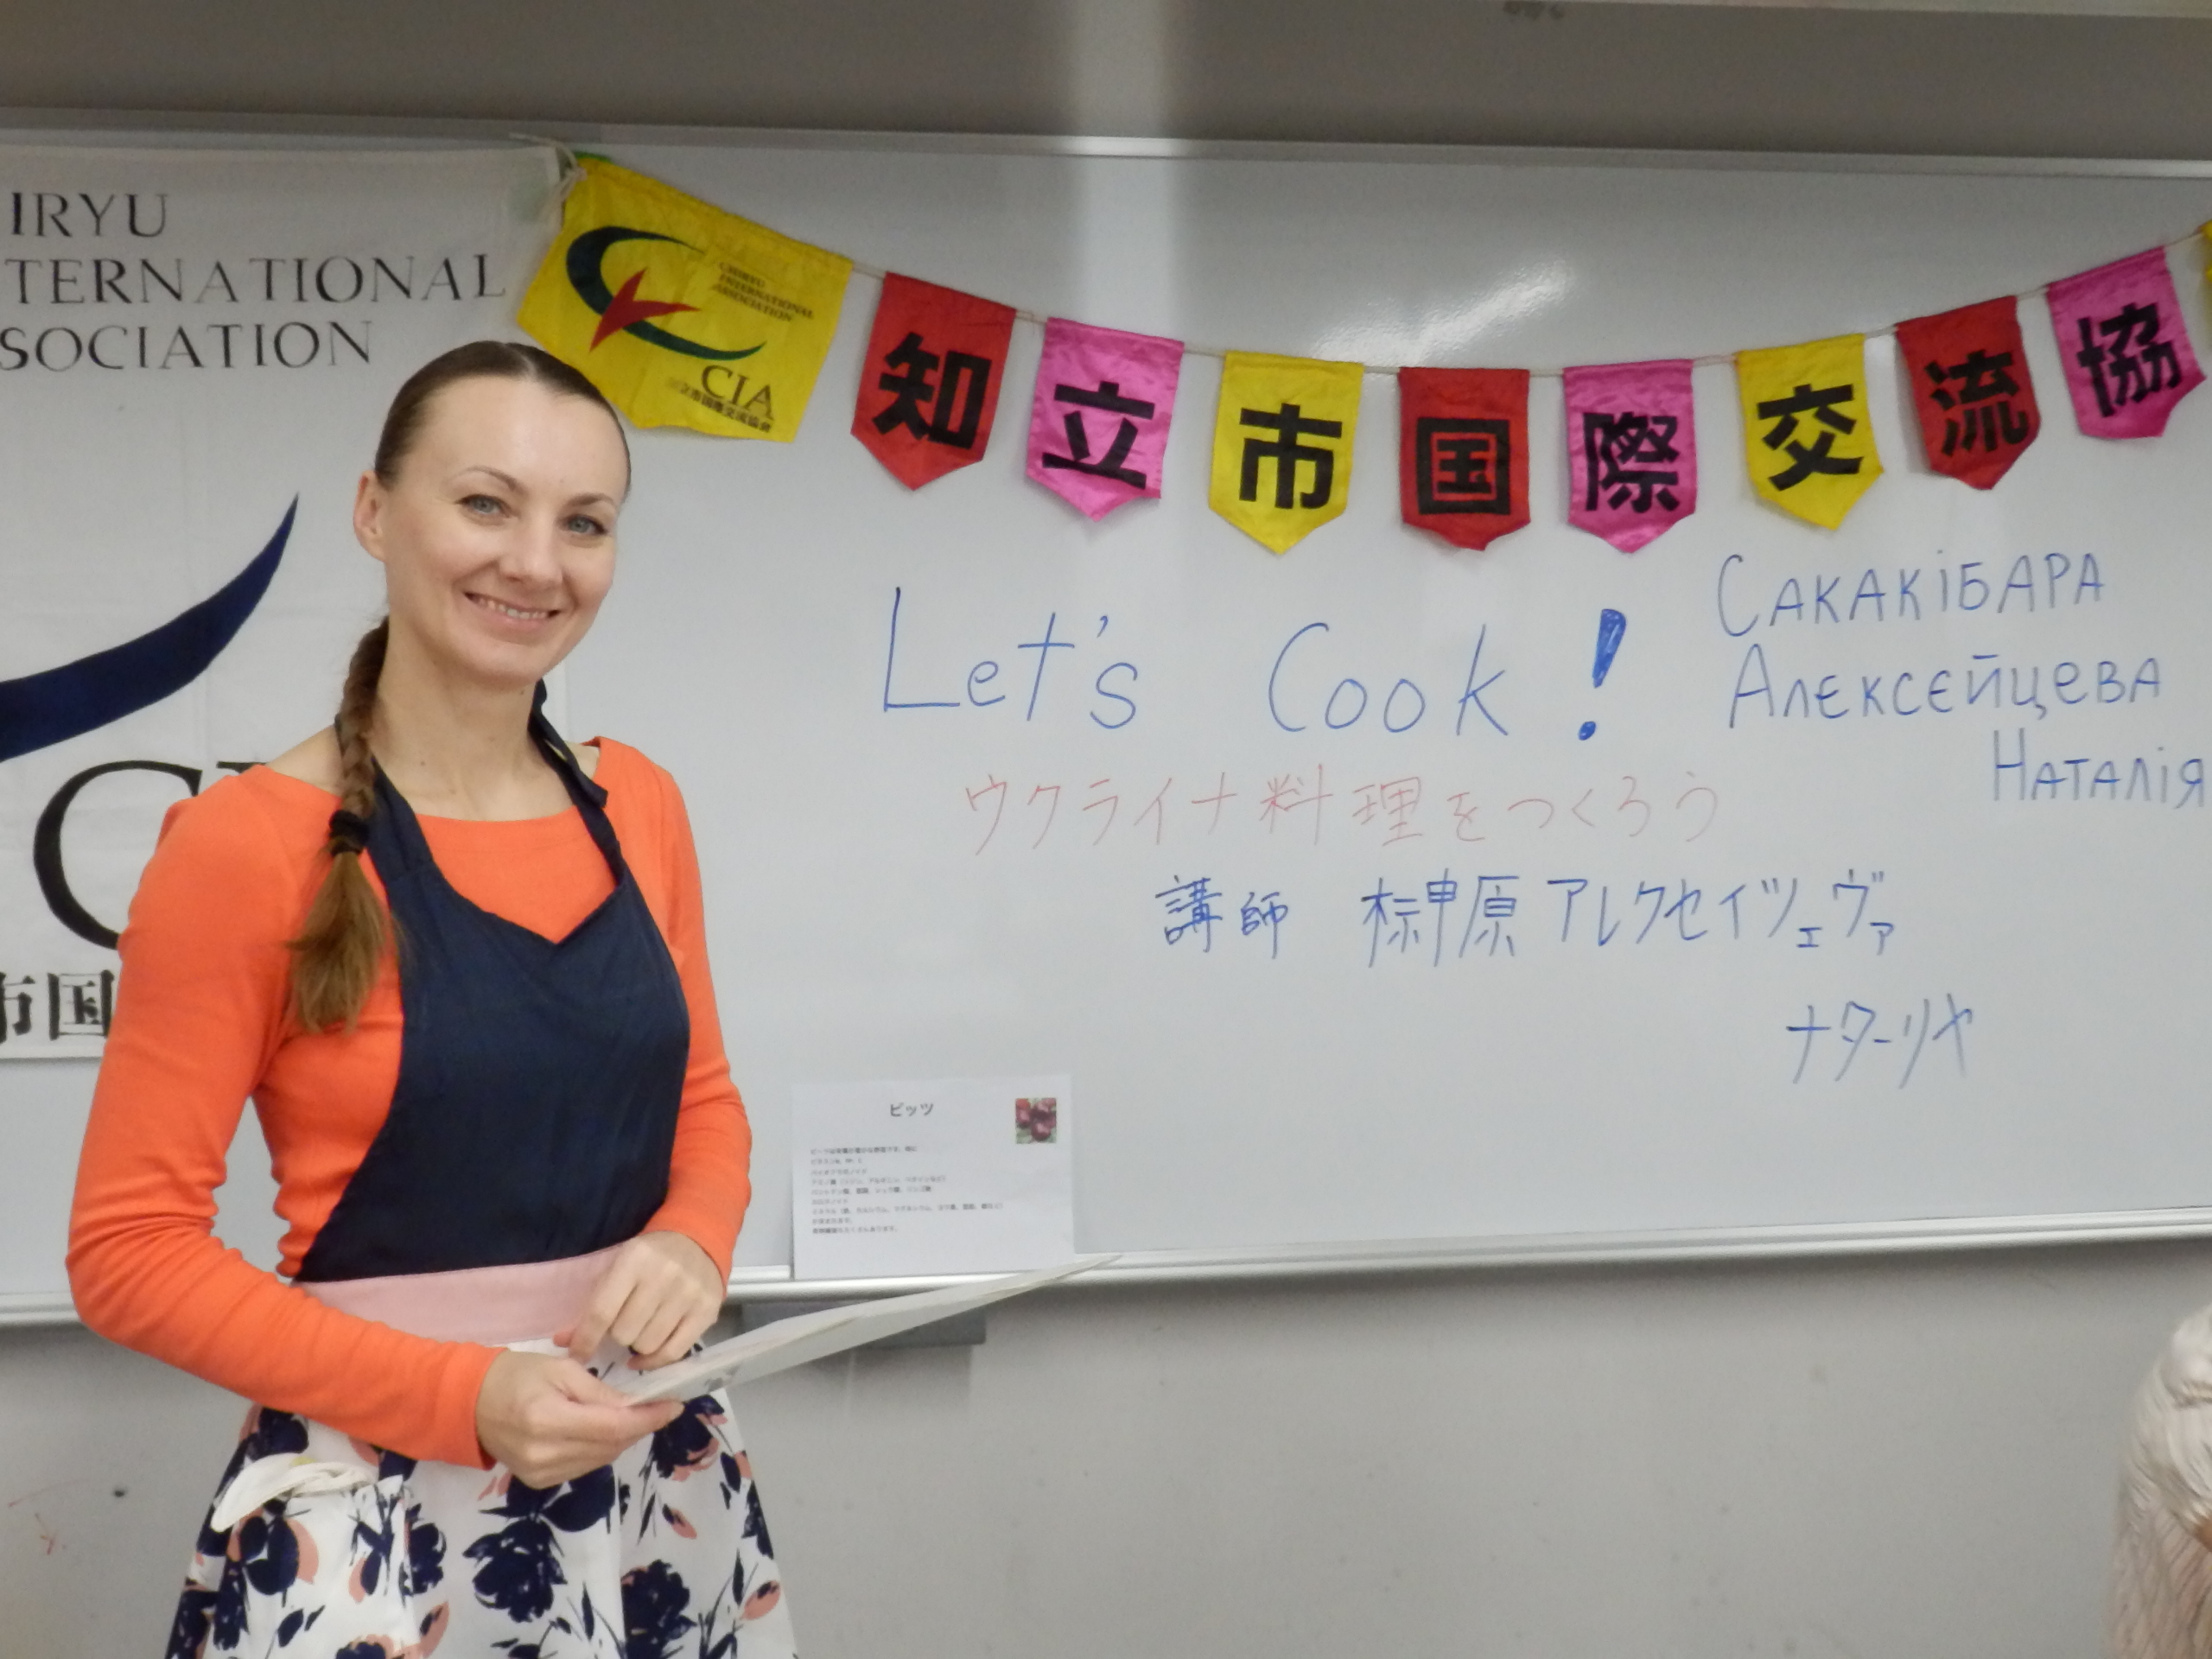 IRYU
TERNATIONAL
SOCIATION
市国
CHIRYU
INTERNATIONAL
ASSOCIATION
CIA
立市国際交流協会
知立市国際交流協
Let's Cook!
ウクライナ料理をつくろう
講師 榊原アレクセイツェヴァ
ナターリヤ
Сакакібара
Алєксєйцева
Наталія
ビッツ